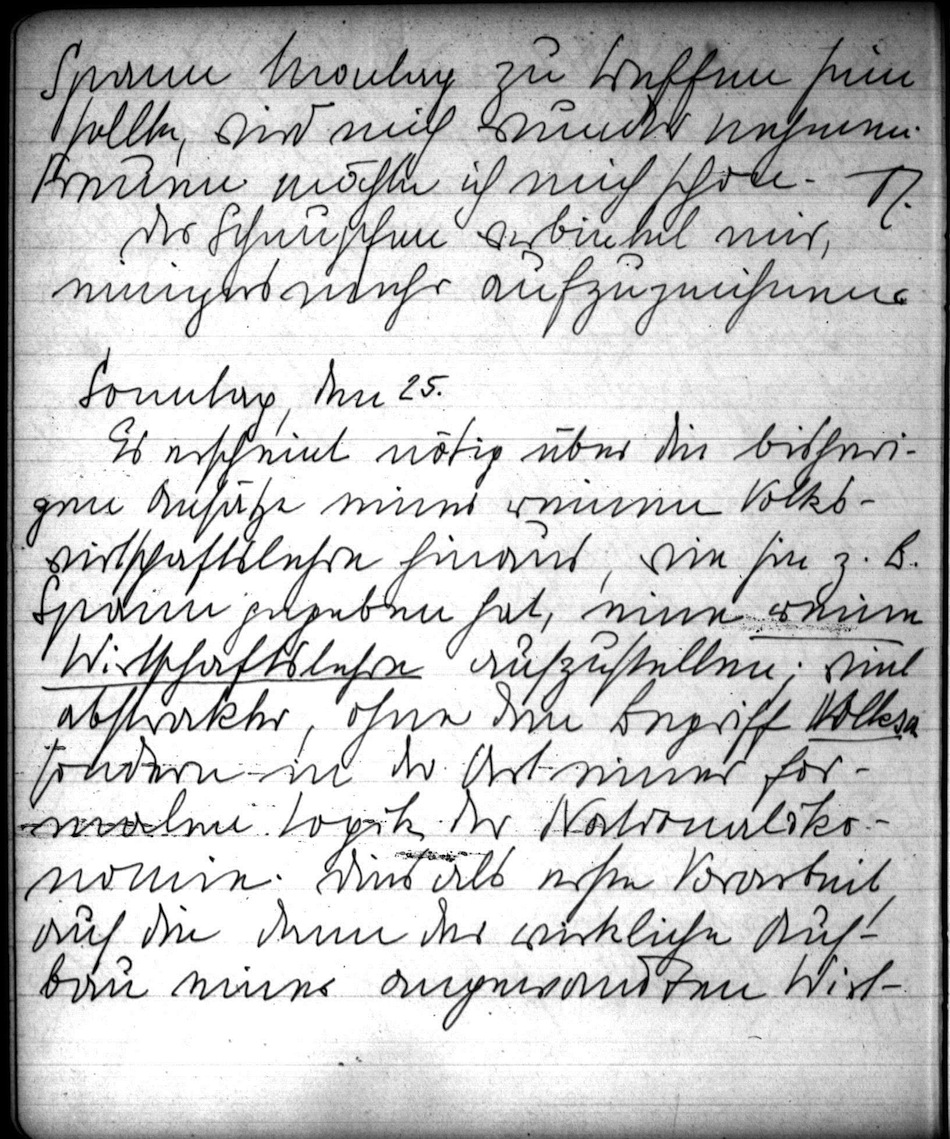 Spann Montag zu treffen sein
sollte, wird mich wunder nehmen.
Freuen möchte ich mich schon. –
Der Schnupfen verbietet mir,
einiges mehr aufzuzeichnen.
Sonntag, den 25.
Es erscheint nötig über die bisheri-
gen Ansätze einer reinen Volks-
wirtschaftslehre hinaus, wie sie z. B.
Spann gegeben hat, eine reine
Wirtschaftslehre aufzustellen; viel
abstrakter, ohne den Begriff Volks
sondern in der Art einer for-
malen Logik der Nationalöko-
nomie. Dies als erste Vorarbeit,
auf die dann der wirkliche Auf-
bau einer angewandten Wirt-